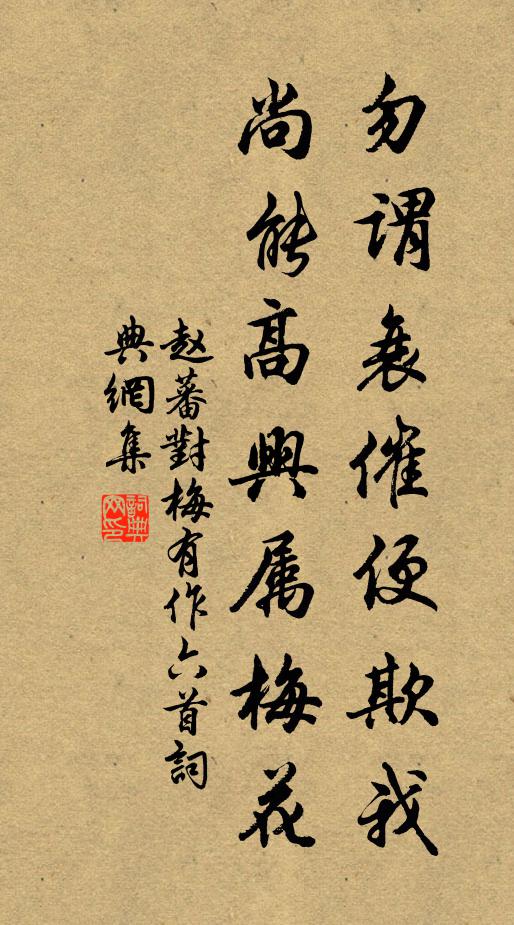 勿谓衰催便欺我
尚能高兴属梅花
赵蕃對梅有作六首詞
典網集
詞典网印